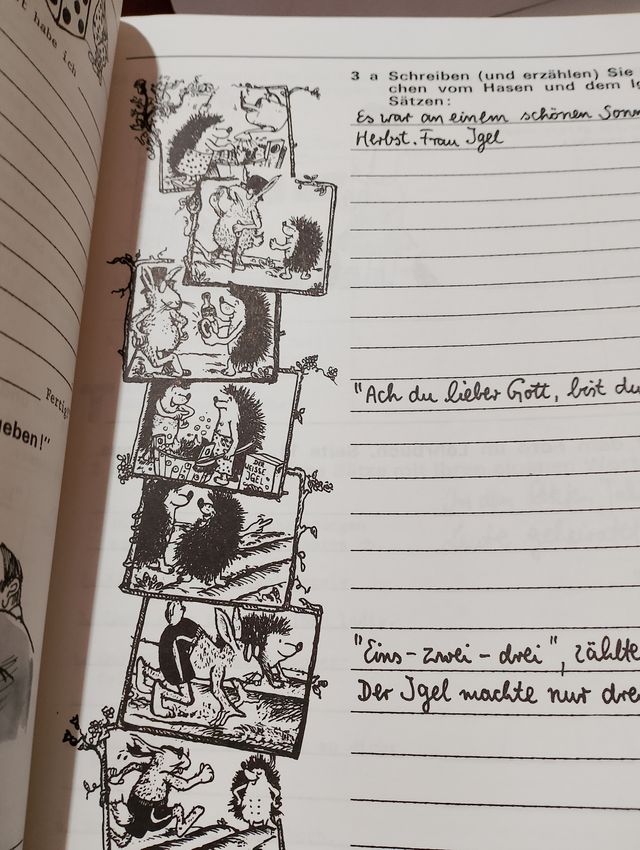 habe ich
Fertig!
eben!"
3 a Schreiben (und erzählen) Sie
chen vom Hasen und dem
Sätzen:
Es war an einem schönen
Herbst. Frau Igel
"Ach du lieber Gott, bist du
"Eins-zwei-drei", zählte
Der Igel machte nur
IGEL